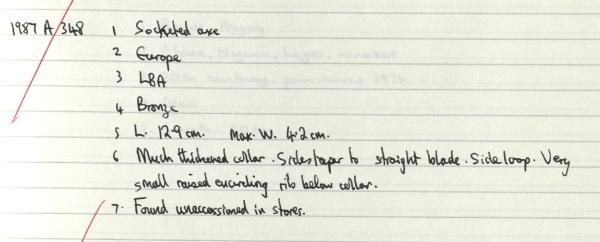 1987 A 348 1 Socketed axe
2 Europe
3 LBA
4 Bronze
5 L. 12·9 cm. Max. W. 4·2 cm.
6 Much thickened collar. Sides taper to straight blade. Side loop. Very
small raised encircling rib below collar.
7. Found unaccessioned in stores.